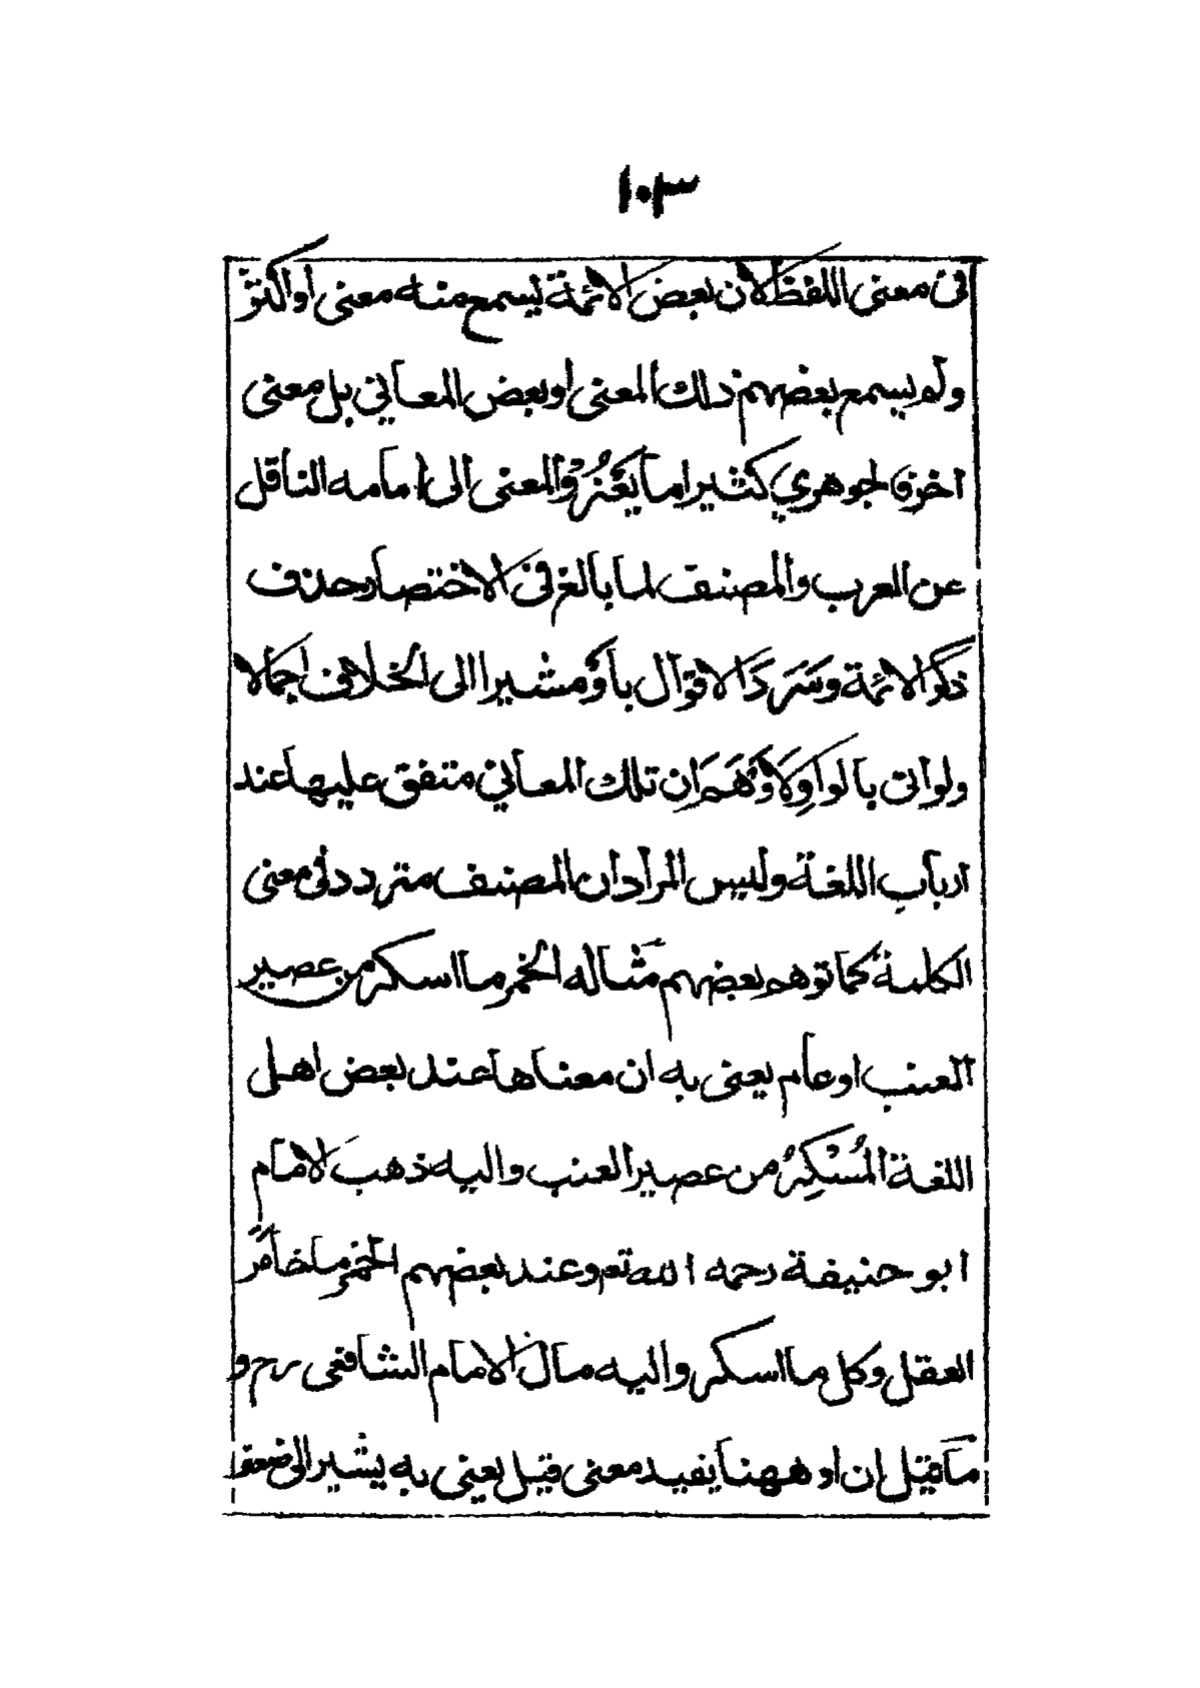 ١٠٣
في معنى اللفظ لأن بعض الائمة يسمع منه معنى أو اكثر
ولم يسمع بعضهم ذلك المعنى او بعض المعاني بل معنى
اخر والجوهري كثيرا ما يَعْزُوْ المعنى الى امامه الناقل
عن العرب والمصنف لما بالغ في الاختصار وحذف
ذكر الائمة وسَرَدَ الاقوال بأَوْ مشيرا الى الخلاف اجمالا
ولو اتى بالواوِ لَأَوْهَمَ ان تلك المعاني متفق عليها عند
ارباب اللغة وليس المراد ان المصنف متردد في معنى
الكلمة كما توهم بعضهم مثاله الخمر ما اسكر من عصير
العنب او عام يعنى به ان معناها عند بعض اهل
اللغة المُسْكِرُ من عصير العنب واليه ذهب الامام
ابو حنيفة رحمه الله تع وعند بعضهم الخمر ما خامر
العقل وكل ما اسكر واليه مال الامام الشافعى رح و
ما قيل ان او ههنا يفيد معنى قيل يعني به يشير الى ضعف